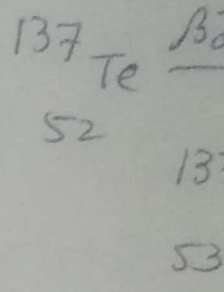 137 Te β
52
137
53